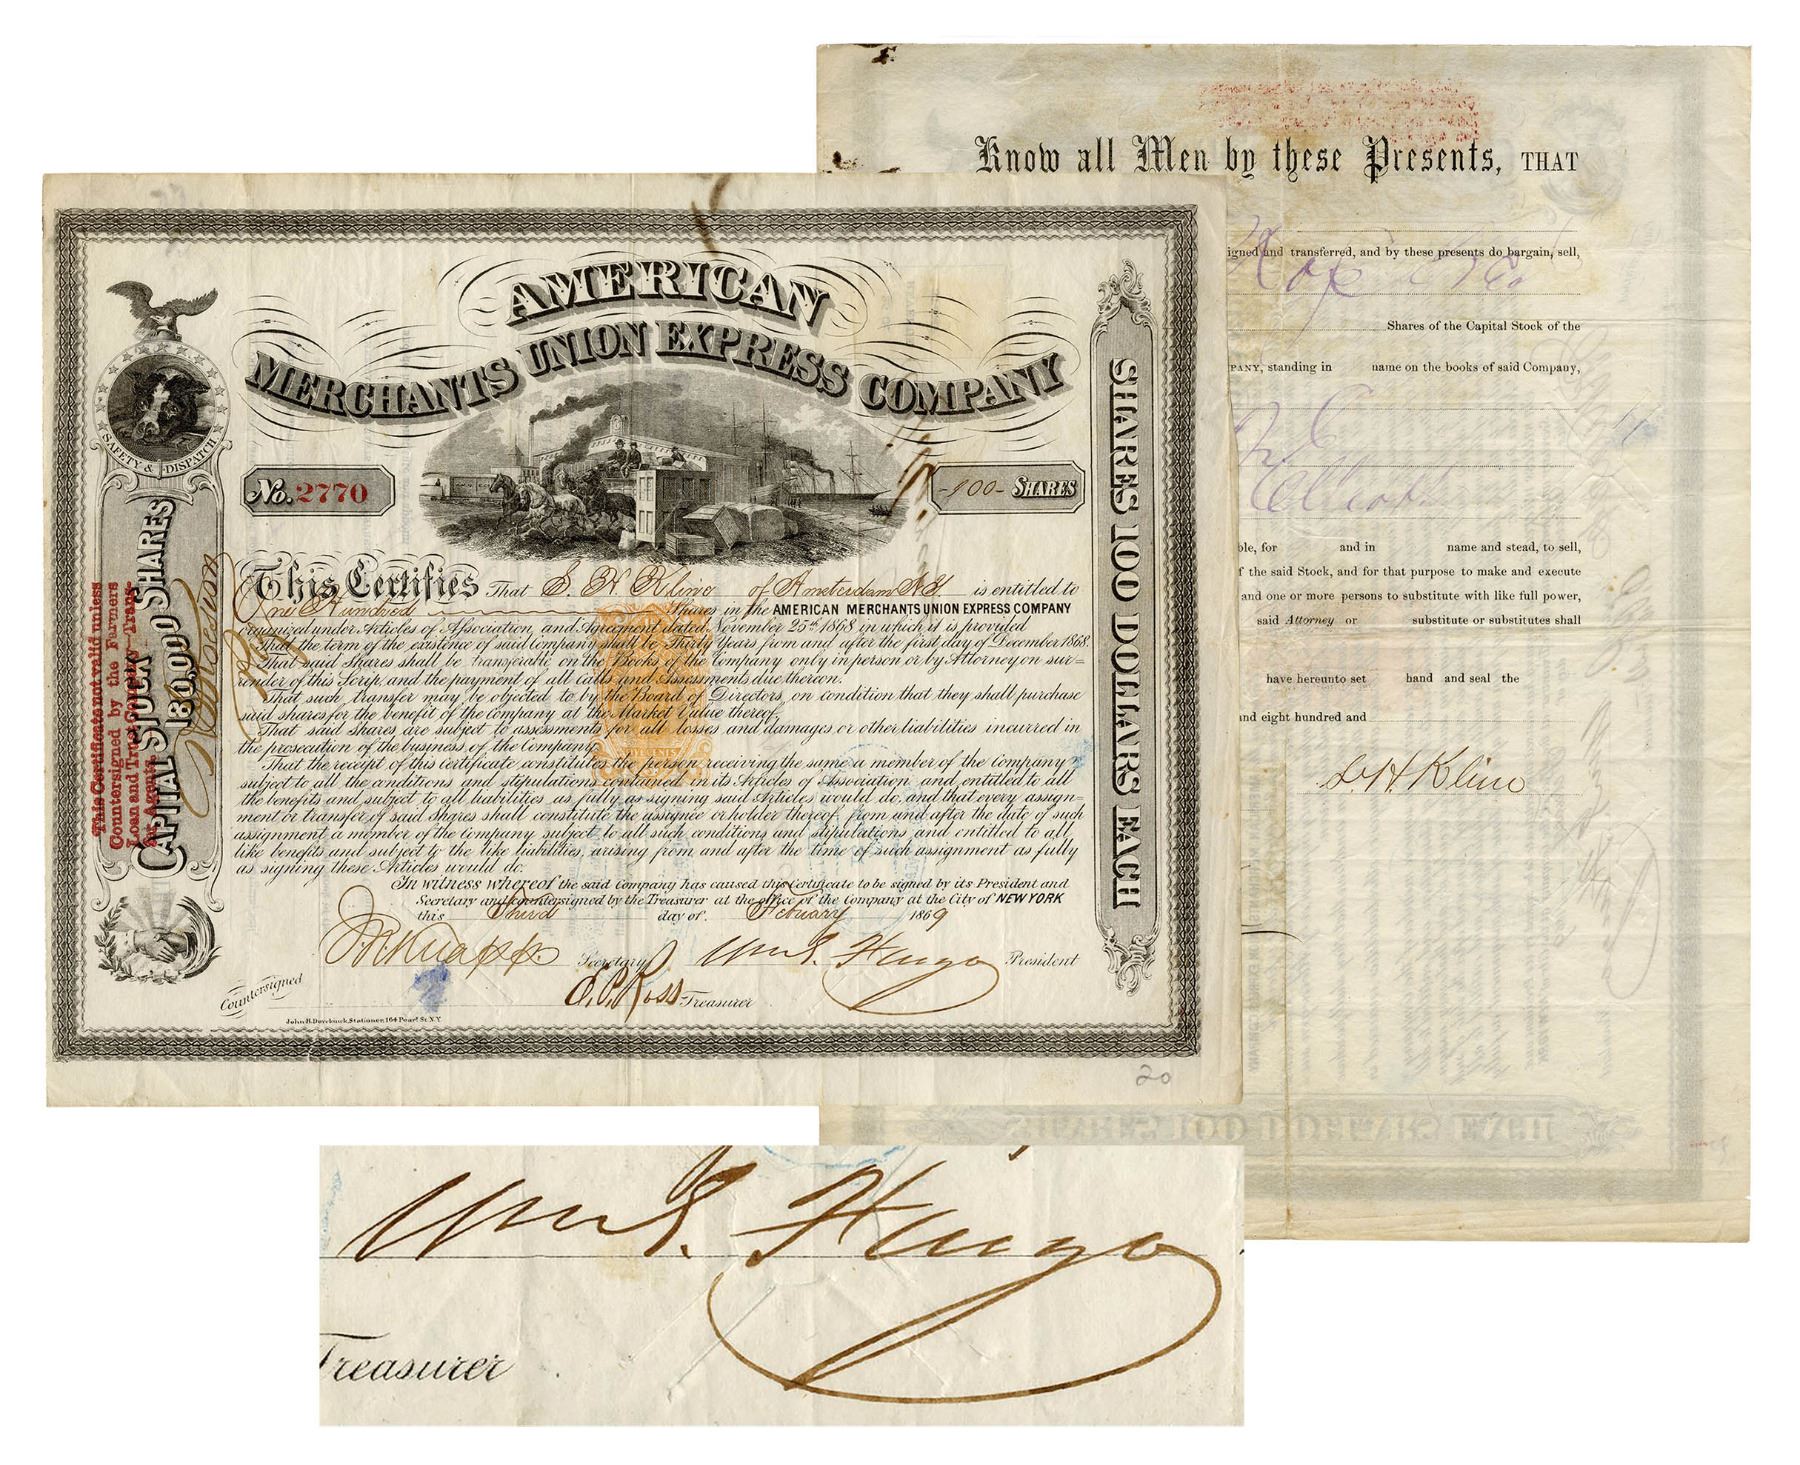 AMERICAN
MERCHANTS UNION EXPRESS COMPANY
SAFETY & DISPATCH
No. 2770
-100- SHARES
CAPITAL STOCK 180,000 SHARES
SHARES 100 DOLLARS EACH
This Certificate not valid unless
Countersigned by the Farmers
Loan and Trust Company Trans-
fer Agents.
This Certifies That S. H. Kline of Amsterdam N.Y. is entitled to
One Hundred Shares in the AMERICAN MERCHANTS UNION EXPRESS COMPANY
organized under Articles of Association, and Agreement dated November 25th 1868 in which it is provided
That the term of the existence of said Company shall be Thirty Years from and after the first day of December 1868.
That said Shares shall be transferable on the Books of the Company only in person or by Attorney on sur=
render of this Scrip and the payment of all Calls and Assessments due thereon.
That such transfer may be objected to by the Board of Directors, on condition that they shall purchase
said shares for the benefit of the Company at the Market Value thereof,
That said shares are subject to assessments for all losses and damages or other liabilities incurred in
the prosecution of the business of the Company.
That the receipt of this Certificate constitutes the person receiving the same a member of the Company
subject to all the conditions and stipulations contained in its Articles of Association and entitled to all
the benefits and subject to all liabilities as fully as signing said Articles would do, and that every assign=
ment or transfer of said Shares shall constitute the assignee or holder thereof from and after the date of such
assignment a member of the Company subject to all such conditions and stipulations and entitled to all
like benefits and subject to the like liabilities, arising from and after the time of such assignment as fully
as signing these Articles would do.
In witness whereof the said Company has caused this Certificate to be signed by its President and
Secretary and countersigned by the Treasurer at the office of the Company at the City of NEW YORK
this Third day of February 1869
J. N. Knapp Secretary Wm G. Fargo President
Countersigned E. P. Ross Treasurer
John H. Duyckinck, Stationer, 164 Pearl St. N.Y.
20
Know all Men by these Presents, THAT
igned and transferred, and by these presents do bargain, sell,
Shares of the Capital Stock of the
PANY, standing in name on the books of said Company,
ble, for and in name and stead, to sell,
f the said Stock, and for that purpose to make and execute
and one or more persons to substitute with like full power,
said Attorney or substitute or substitutes shall
have hereunto set hand and seal the
and eight hundred and
S. H. Kline
Wm G. Fargo
Treasurer